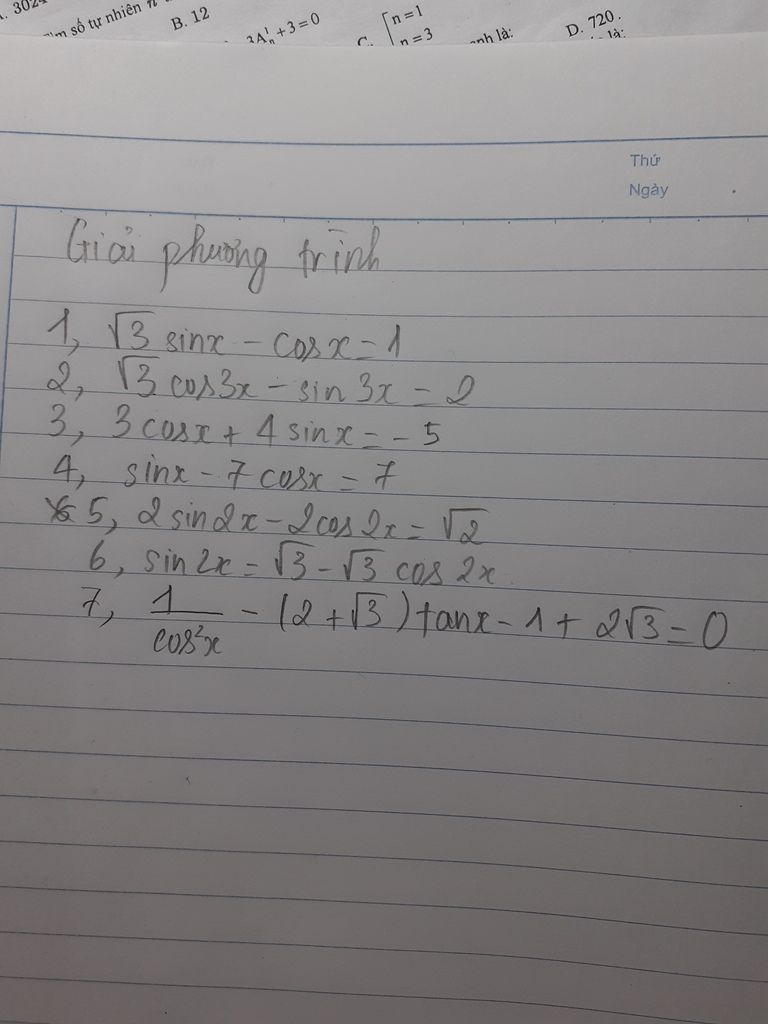 . 302
số tự nhiên n
B. 12
3A¹ₙ + 3 = 0
C. [n = 1
n = 3
anh là:
D. 720.
là:
Thứ
Ngày
Giải phương trình
1, √3 sinx - cosx = 1
2, √3 cos3x - sin 3x = 2
3, 3cosx + 4 sinx = - 5
4, sinx - 7cosx = 7
5, 2sin2x - 2cos2x = √2
6, sin2x = √3 - √3 cos 2x
7, 1/cos²x - (2 + √3) tanx - 1 + 2√3 = 0